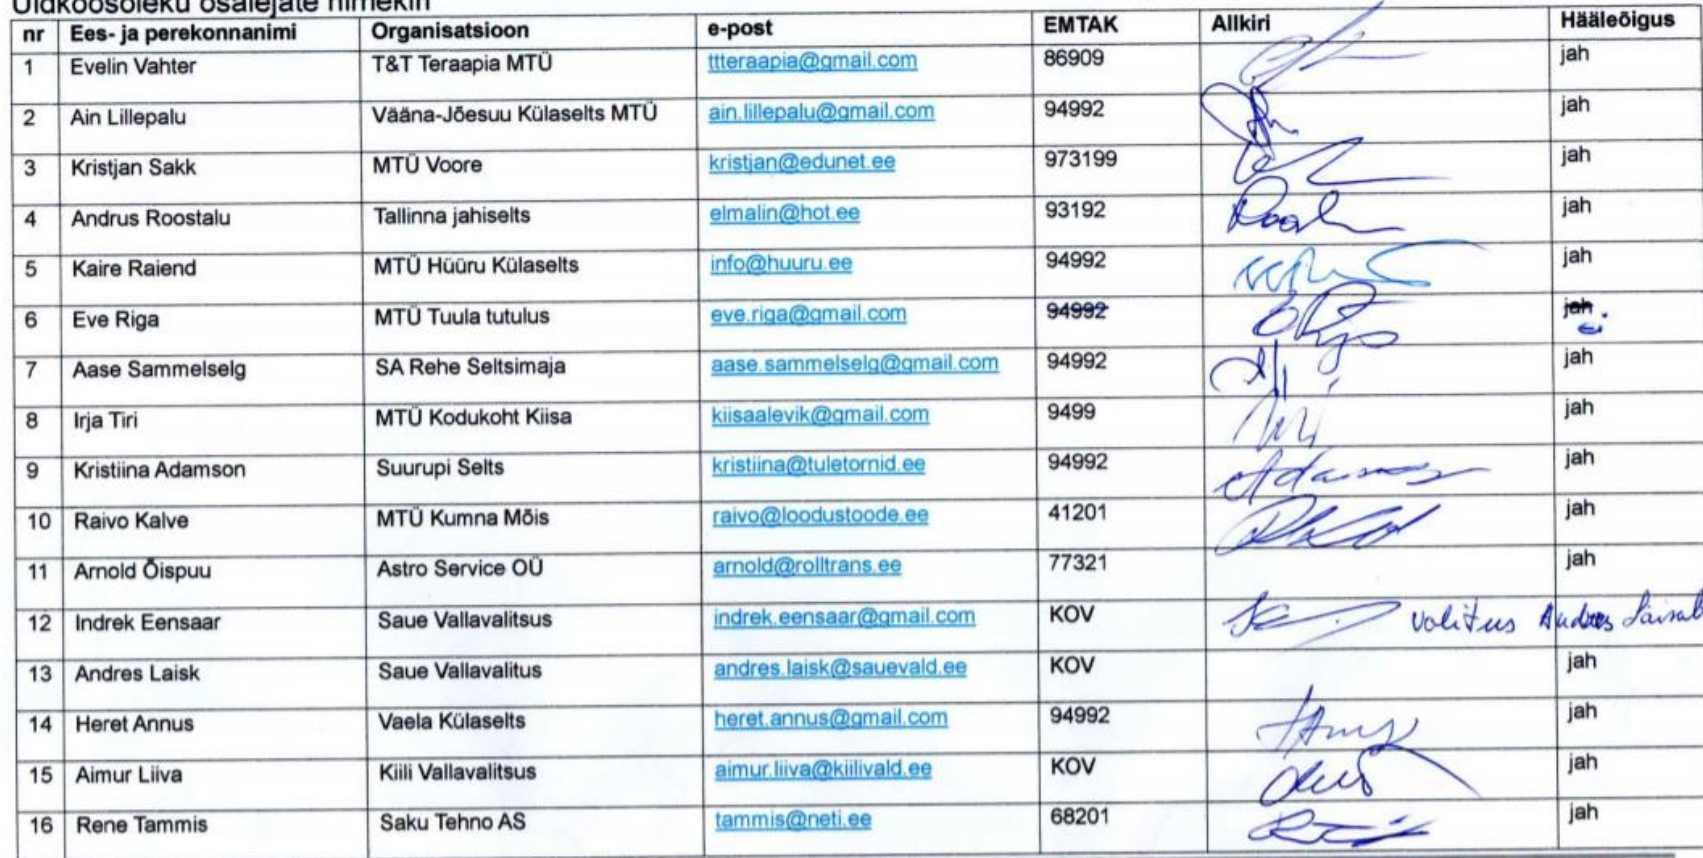 Üldkoosoleku osalejate nimekiri
nr Ees- ja perekonnanimi Organisatsioon e-post EMTAK Allkiri Hääleõigus
1 Evelin Vahter T&T Teraapia MTÜ ttteraapia@gmail.com 86909 jah
2 Ain Lillepalu Vääna-Jõesuu Külaselts MTÜ ain.lillepalu@gmail.com 94992 jah
3 Kristjan Sakk MTÜ Voore kristjan@edunet.ee 973199 jah
4 Andrus Roostalu Tallinna jahiselts elmalin@hot.ee 93192 jah
5 Kaire Raiend MTÜ Hüüru Külaselts info@huuru.ee 94992 jah
6 Eve Riga MTÜ Tuula tutulus eve.riga@gmail.com 94992 jah ei
7 Aase Sammelselg SA Rehe Seltsimaja aase.sammelselg@gmail.com 94992 jah
8 Irja Tiri MTÜ Kodukoht Kiisa kiisaalevik@gmail.com 9499 jah
9 Kristiina Adamson Suurupi Selts kristiina@tuletornid.ee 94992 Adamson jah
10 Raivo Kalve MTÜ Kumna Mõis raivo@loodustoode.ee 41201 jah
11 Arnold Õispuu Astro Service OÜ arnold@rolltrans.ee 77321 jah
12 Indrek Eensaar Saue Vallavalitsus indrek.eensaar@gmail.com KOV volitus Andres
13 Andres Laisk Saue Vallavalitus andres.laisk@sauevald.ee KOV jah
14 Heret Annus Vaela Külaselts heret.annus@gmail.com 94992 jah
15 Aimur Liiva Kiili Vallavalitsus aimur.liiva@kiilivald.ee KOV jah
16 Rene Tammis Saku Tehno AS tammis@neti.ee 68201 jah